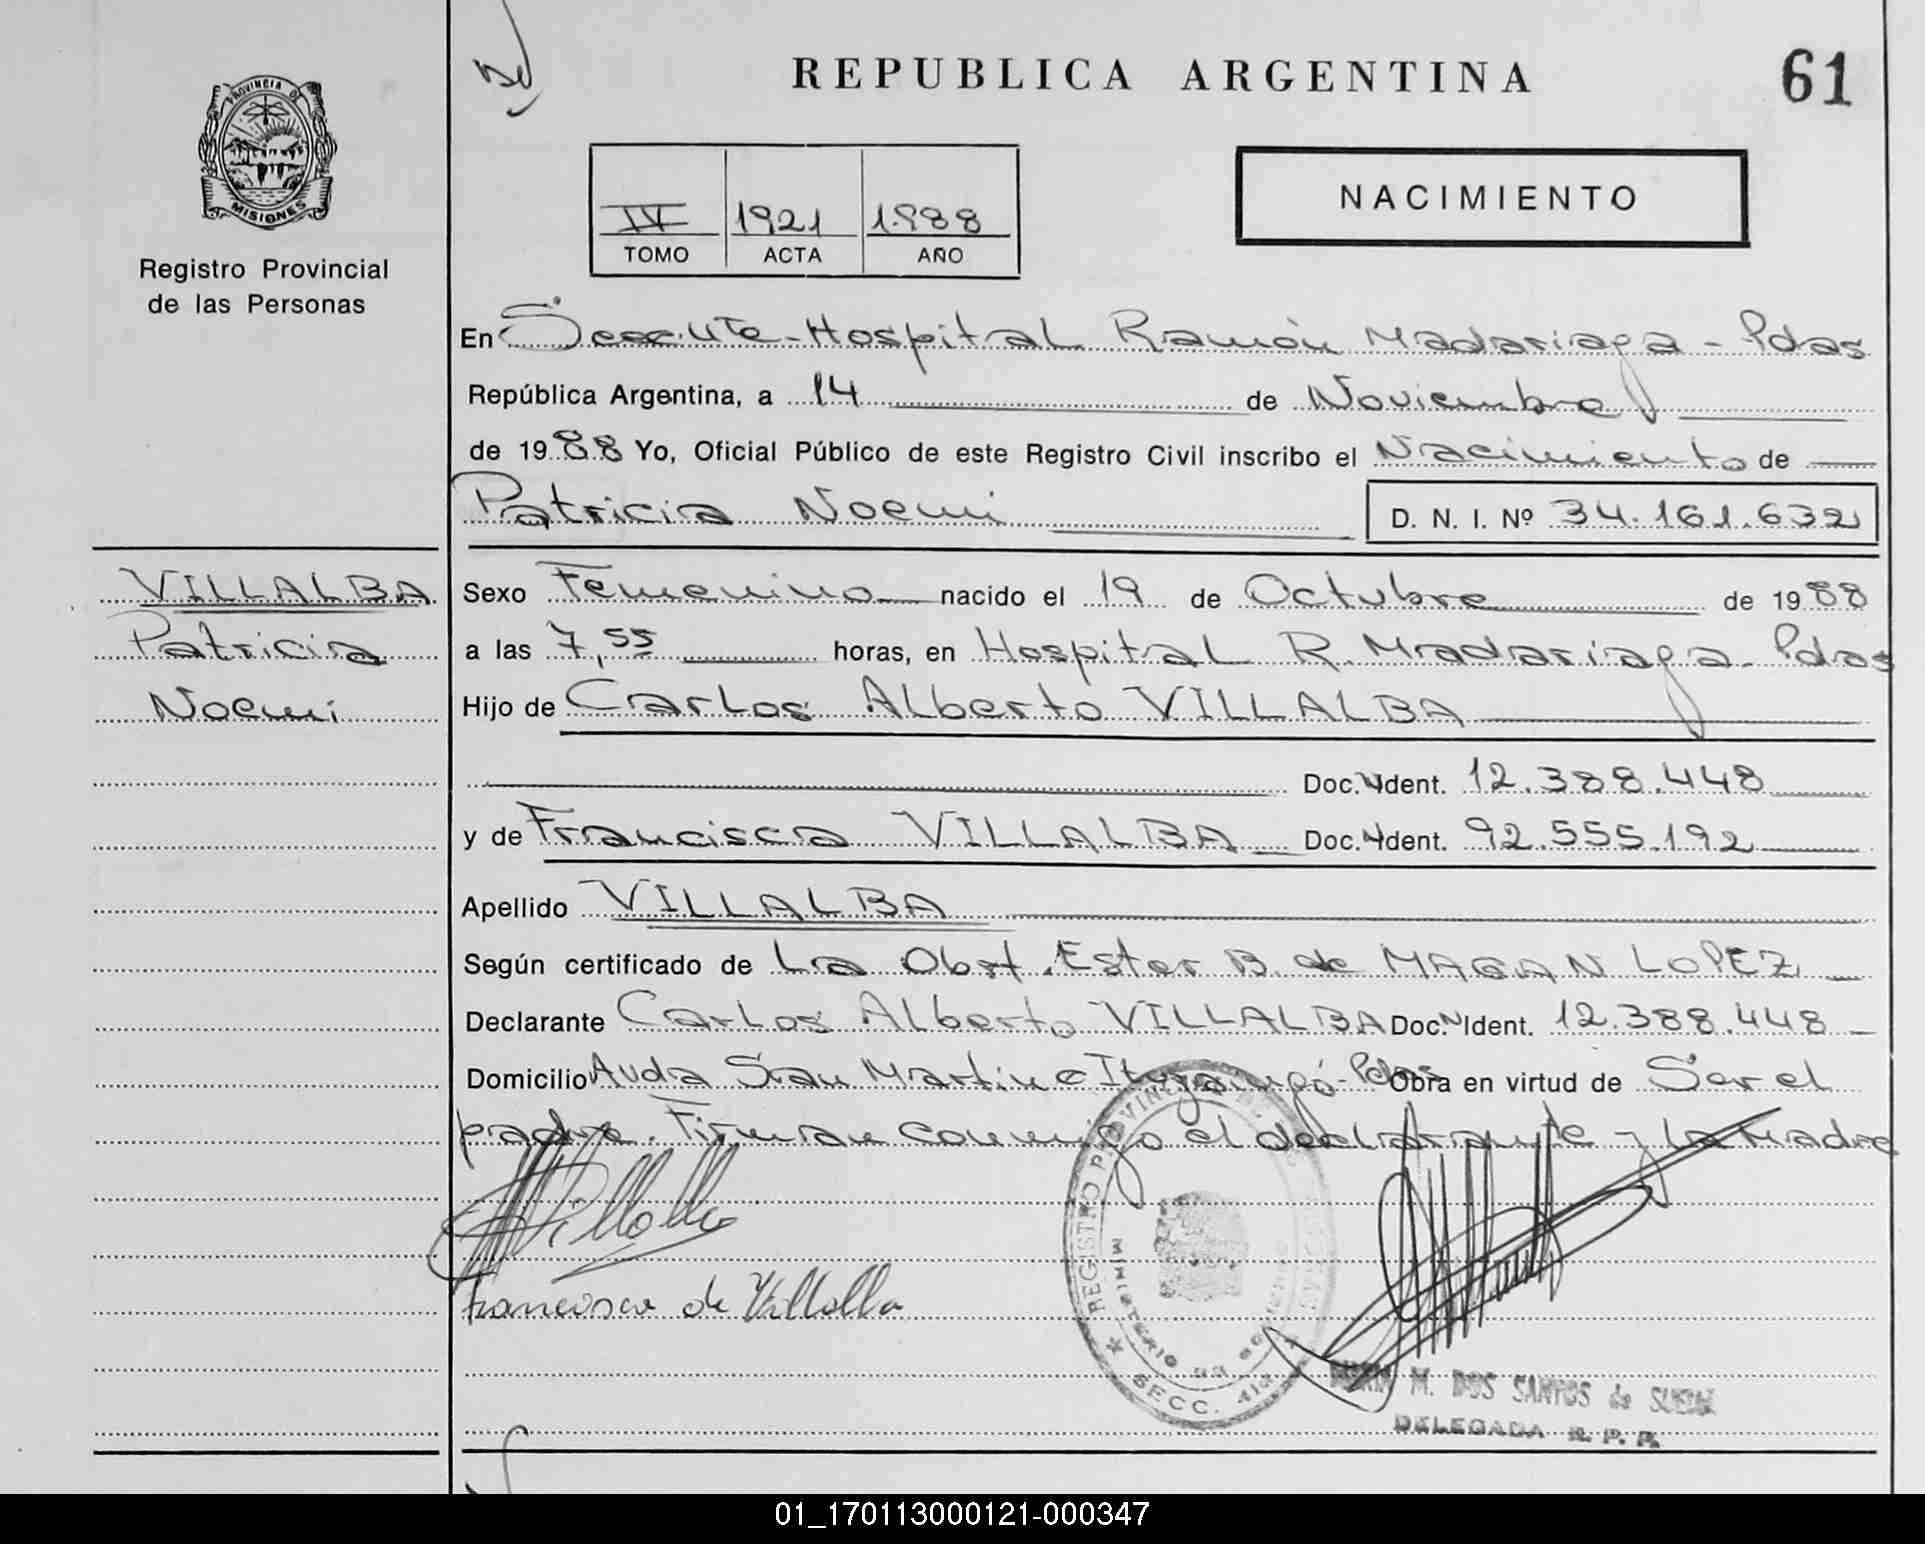 REPUBLICA ARGENTINA
61
PROVINCIA DE
MISIONES
Registro Provincial
de las Personas
IV 1921 1.988
TOMO ACTA AÑO
NACIMIENTO
En Hospital Ramón Madariaga - Pdas
República Argentina, a 14 de Noviembre
de 1988 Yo, Oficial Público de este Registro Civil inscribo el Nacimiento de
Patricia Noemi D. N. I. Nº 34.161.632
VILLALBA
Patricia
Noemi
Sexo Femenino nacido el 19 de Octubre de 1988
a las 7,55 horas, en Hospital R. Madariaga - Pdas
Hijo de Carlos Alberto VILLALBA
Doc. Ident. 12.388.448
y de Francisca VILLALBA Doc. Ident. 92.555.192
Apellido VILLALBA
Según certificado de La Obst. Ester B. de MAGAN LOPEZ
Declarante Carlos Alberto VILLALBA Doc. Ident. 12.388.448
Domicilio Avda San Martin e Pdas Obra en virtud de Ser el
padre. Firman conmigo el declarante y la Madre
Villalba
Francisca de Villalba
REGISTRO PROVINCIAL
MINISTERIO DE GOBIERNO
SECC. 4ta
M. DOS SANTOS de
DELEGADA R. P. P.
01_170113000121-000347